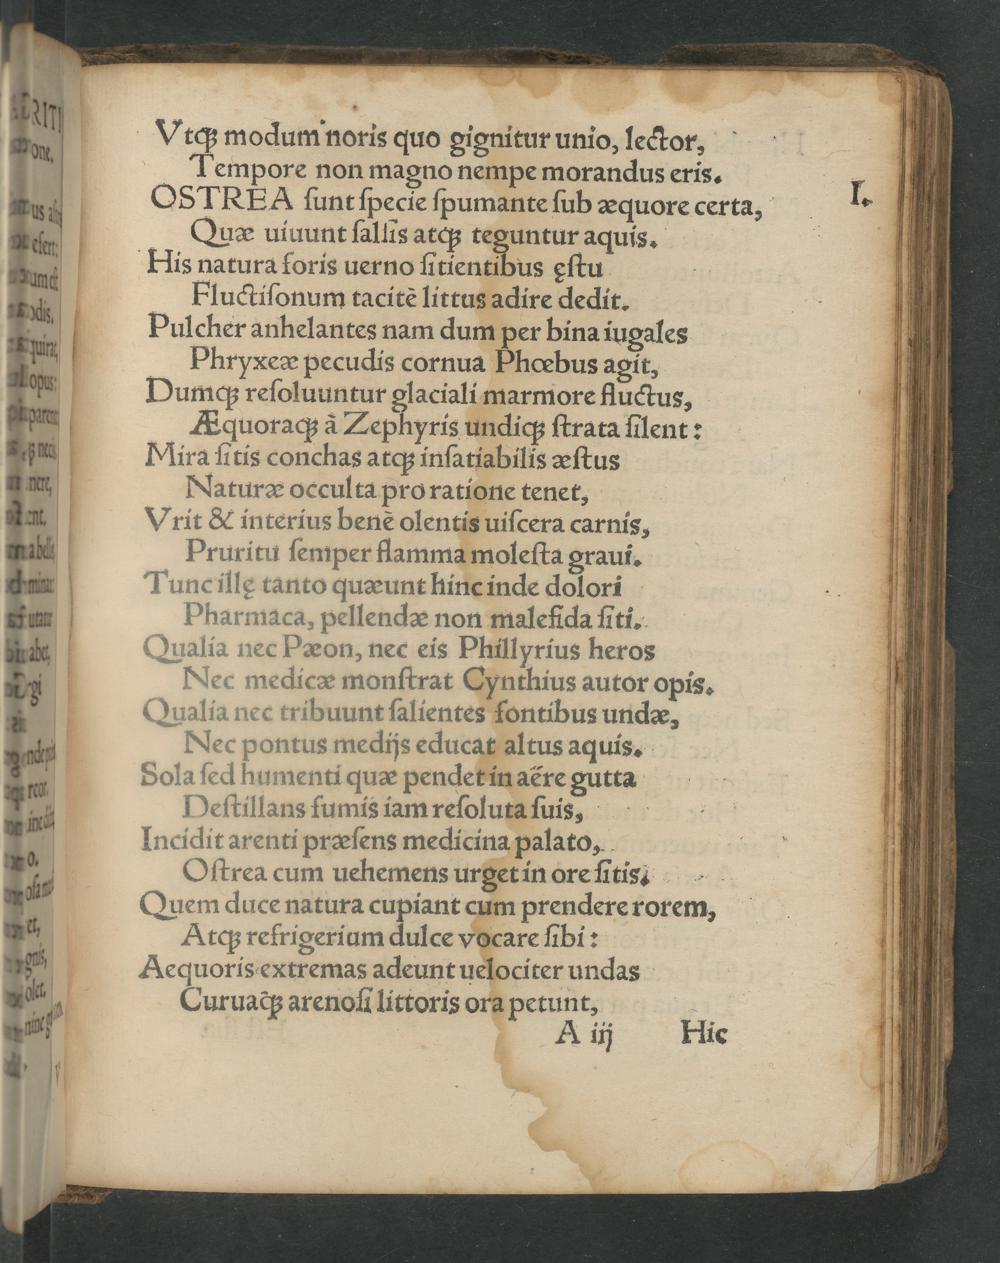 Vtqꝫ modum noris quo gignitur unio, lector,
Tempore non magno nempe morandus eris.
OSTREA ſunt ſpecie ſpumante ſub æquore certa,
I.
Quæ uiuunt ſalſis atqꝫ teguntur aquis.
His natura foris uerno ſitientibus ęſtu
Fluctiſonum tacitè littus adire dedit.
Pulcher anhelantes nam dum per bina iugales
Phryxeæ pecudis cornua Phœbus agit,
Dumqꝫ reſoluuntur glaciali marmore fluctus,
Æquoraqꝫ à Zephyris undiqꝫ ſtrata ſilent:
Mira ſitis conchas atqꝫ inſatiabilis æſtus
Naturæ occulta pro ratione tenet,
Vrit & interius benè olentis uiſcera carnis,
Pruritu ſemper flamma moleſta graui.
Tunc illę tanto quæunt hinc inde dolori
Pharmaca, pellendæ non malefida ſiti.
Qualia nec Pæon, nec eis Phillyrius heros
Nec medicæ monſtrat Cynthius autor opis.
Qualia nec tribuunt ſalientes fontibus undæ,
Nec pontus medijs educat altus aquis.
Sola ſed humenti quæ pendet in aëre gutta
Deſtillans fumis iam reſoluta ſuis,
Incidit arenti præſens medicina palato,
Oſtrea cum uehemens urget in ore ſitis.
Quem duce natura cupiant cum prendere rorem,
Atqꝫ refrigerium dulce vocare ſibi:
Aequoris extremas adeunt uelociter undas
Curuaqꝫ arenoſi littoris ora petunt,
A iij Hic